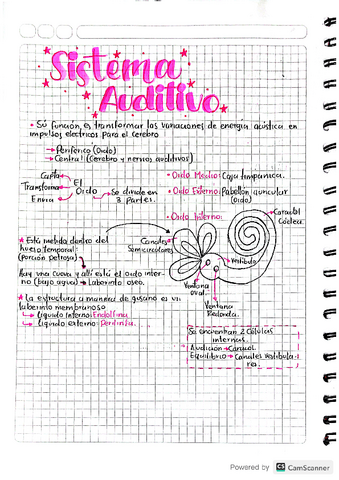 Sistema
Auditivo
• Su función es transformar las variaciones de energia acústica en
impulsos eléctricos para el cerebro
→ Periférico (Oido)
→ Central (Cerebro y nervios auditivos)
Capta
Transforma
Envia
El
Oido
→ Se divide en
3 partes.
• Oido Medio: Caja timpanica.
• Oido Externo: Pabellón auricular
(Oido)
• Oido Interno:
Caracol
Cóclea
Canales
Semicirculares
Vestibulo
Ventana
Oval.
Ventana
Redonda.
★ Está metida dentro del
hueso temporal:
(Porción petrosa)
Hay una cueva y allí está el oido inter-
no (bajo agua) → Laberinto oseo.
★ La estructura a manera de gusano es un
laberinto membranoso
↳ Liquido interno: Endolinfa
↳ Liquido externo: Perilinfa.
Se encuentran 2 Células
internas.
Audición → Caracol.
Equilibrio → Canales vestibula-
res.
Powered by CS CamScanner